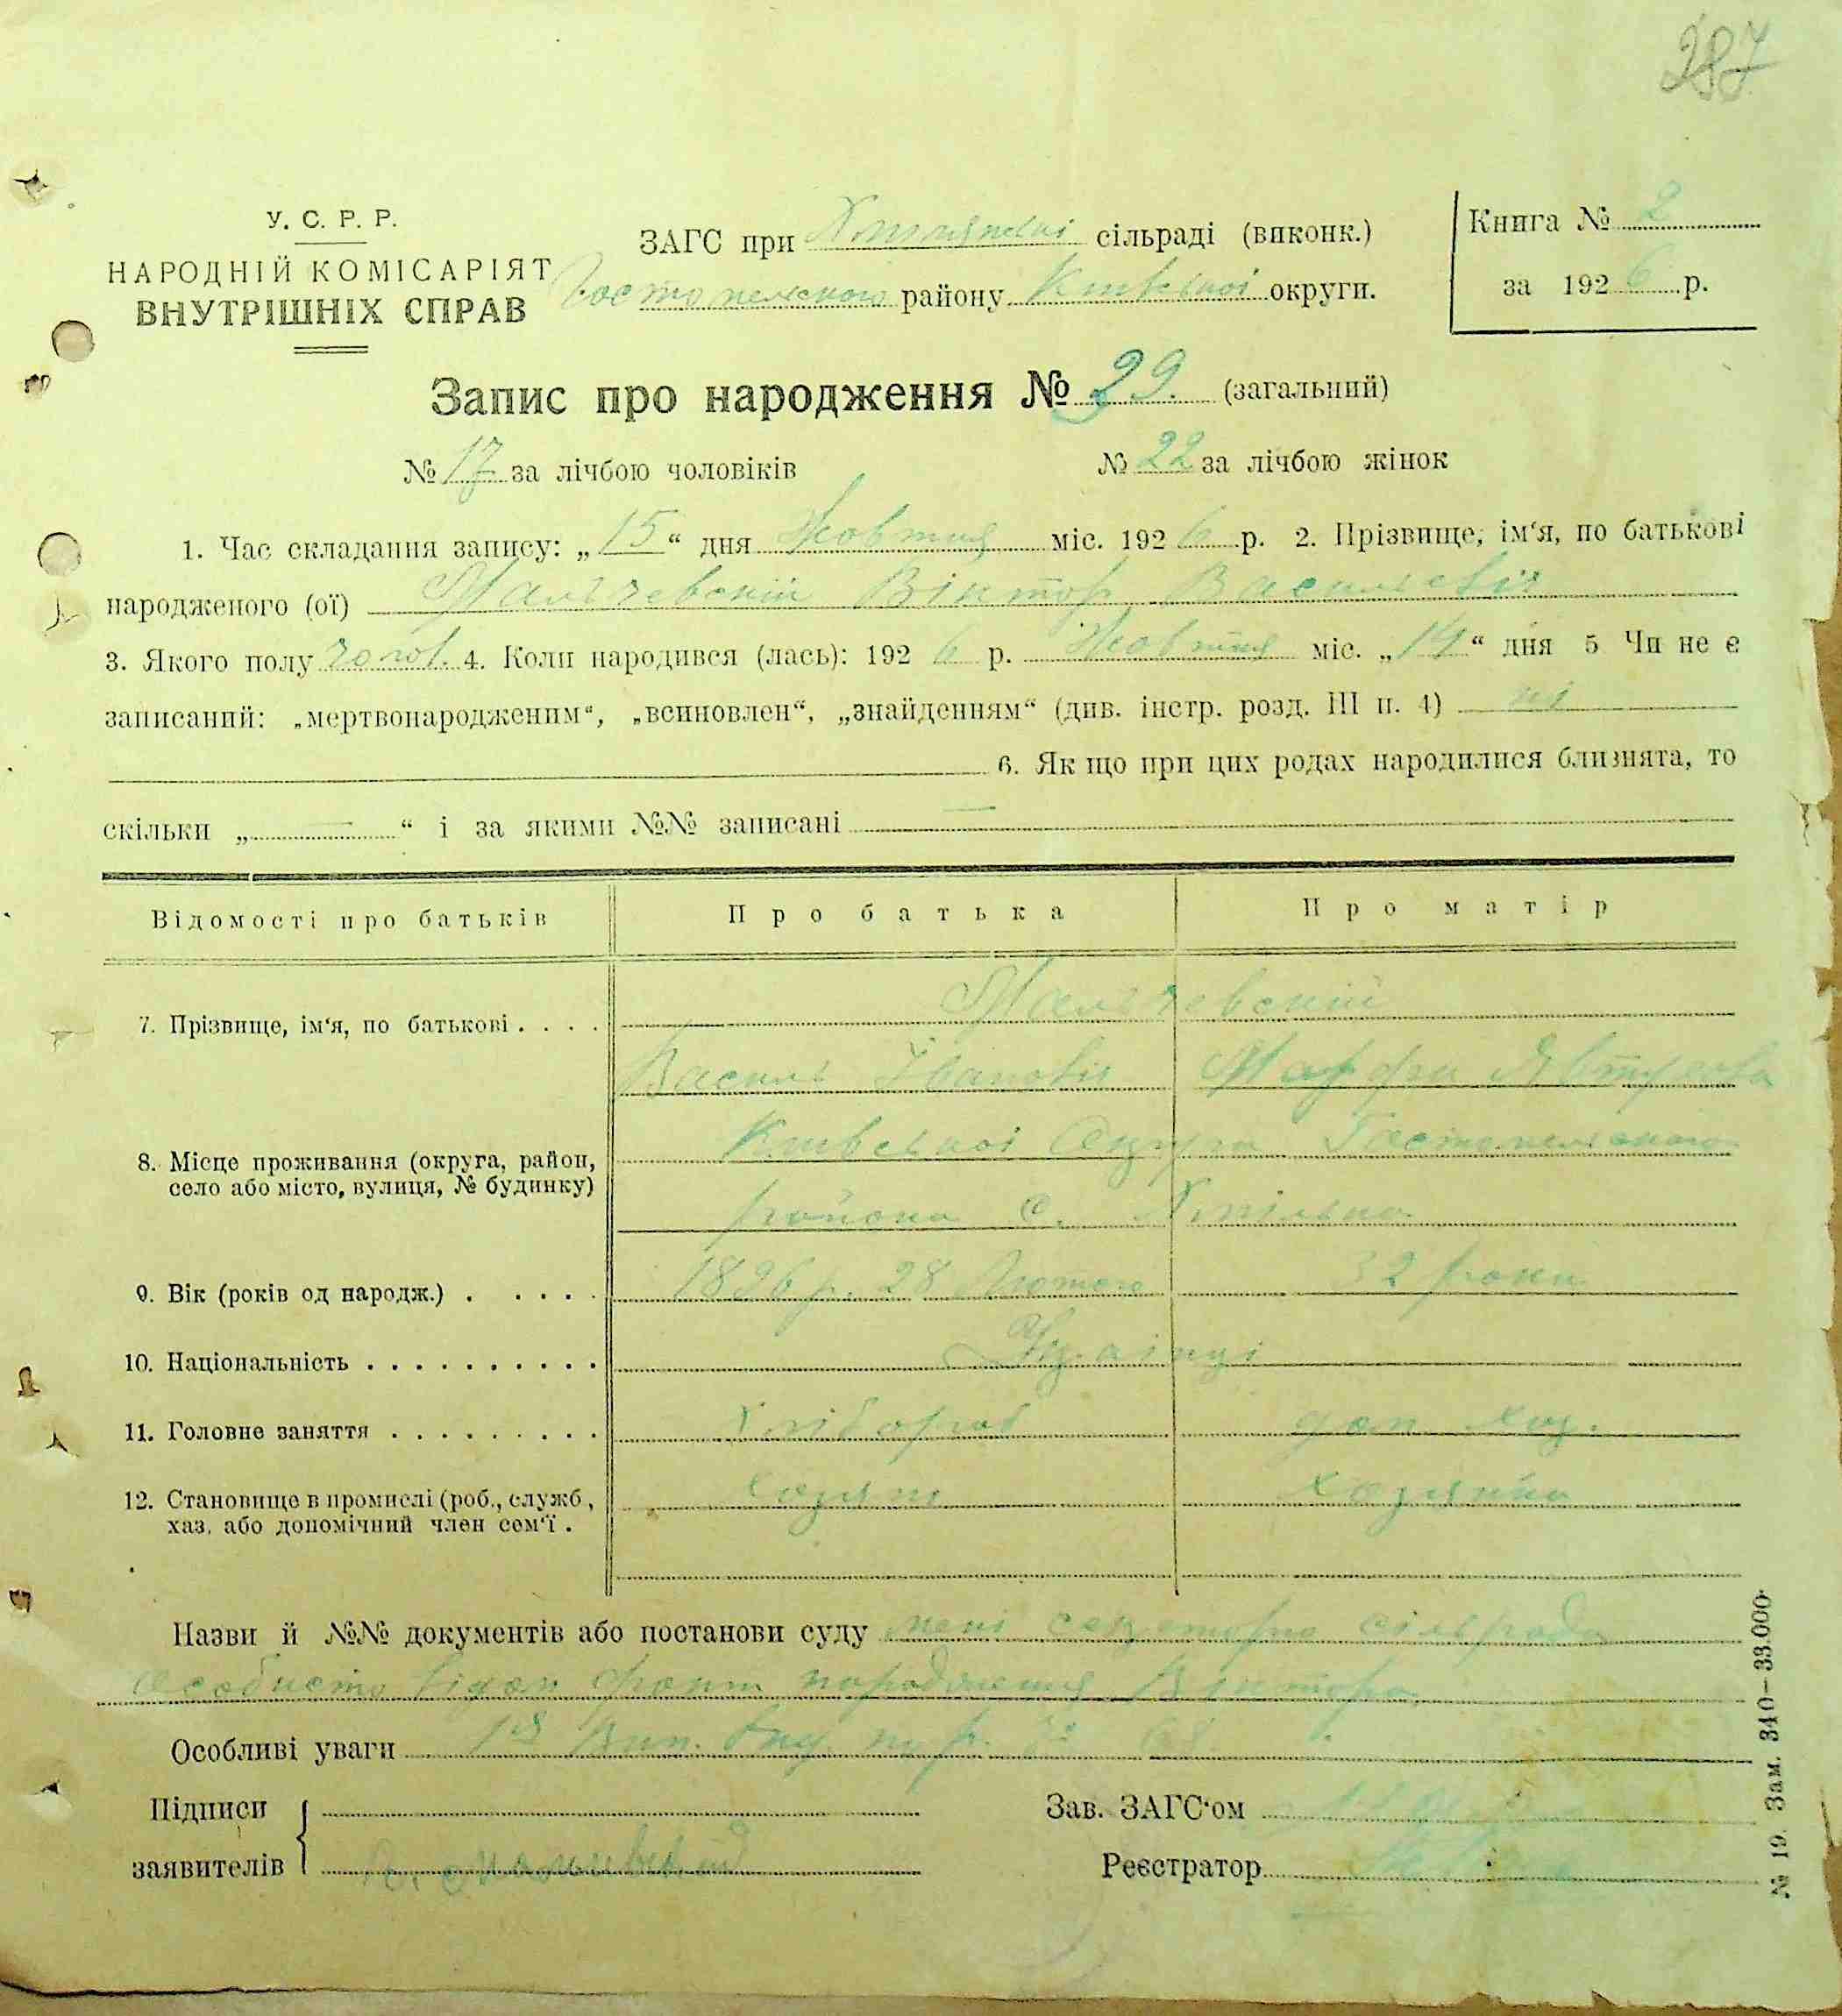 287
У. С. Р. Р.
НАРОДНІЙ КОМІСАРІЯТ
ВНУТРІШНІХ СПРАВ
ЗАГС при сільраді (виконк.)
Гостомельского району Київської округи.
Книга № 2
за 1926 р.
Запис про народження № 39. (загальний)
№ 17 за лічбою чоловіків № 22 за лічбою жінок
1. Час складання запису: „15“ дня Жовтня міс. 1926 р. 2. Прізвище, ім‘я, по батькові
народженого (ої) Мальчевский Віктор Васильевіч
3. Якого полу чолов. 4. Коли народився (лась): 1926 р. Жовтня міс. „14“ дня 5 Чи не є
записаний: „мертвонародженим“, „всиновлен“, „знайденням“ (див. інстр. розд. III п. 4) ні
6. Як що при цих родах народилися близнята, то
скільки „—“ і за якими №№ записані —
Відомості про батьків Про батька Про матір
7. Прізвище, ім‘я, по батькові . . . . Мальчевский
Василь Іванович Марфа
8. Місце проживання (округа, район, Київської Округи Гостомельского
село або місто, вулиця, № будинку) района с.
9. Вік (років од народж.) . . . . . 1896 р. 28 Лютого 32 роки
10. Національність . . . . . . . . . . Українці
11. Головне заняття . . . . . . . . . Хлібороб дом. хоз.
12. Становище в промислі (роб., служб, Хозяін Хозяйка
хаз. або допомічний член сем‘ї .
Назви й №№ документів або постанови суду мені секретарю сільради
особисто відом факт народження Віктора
Особливі уваги
Підписи
заявителів
Зав. ЗАГС‘ом
Реєстратор
№ 19. Зам. 340–33.000.